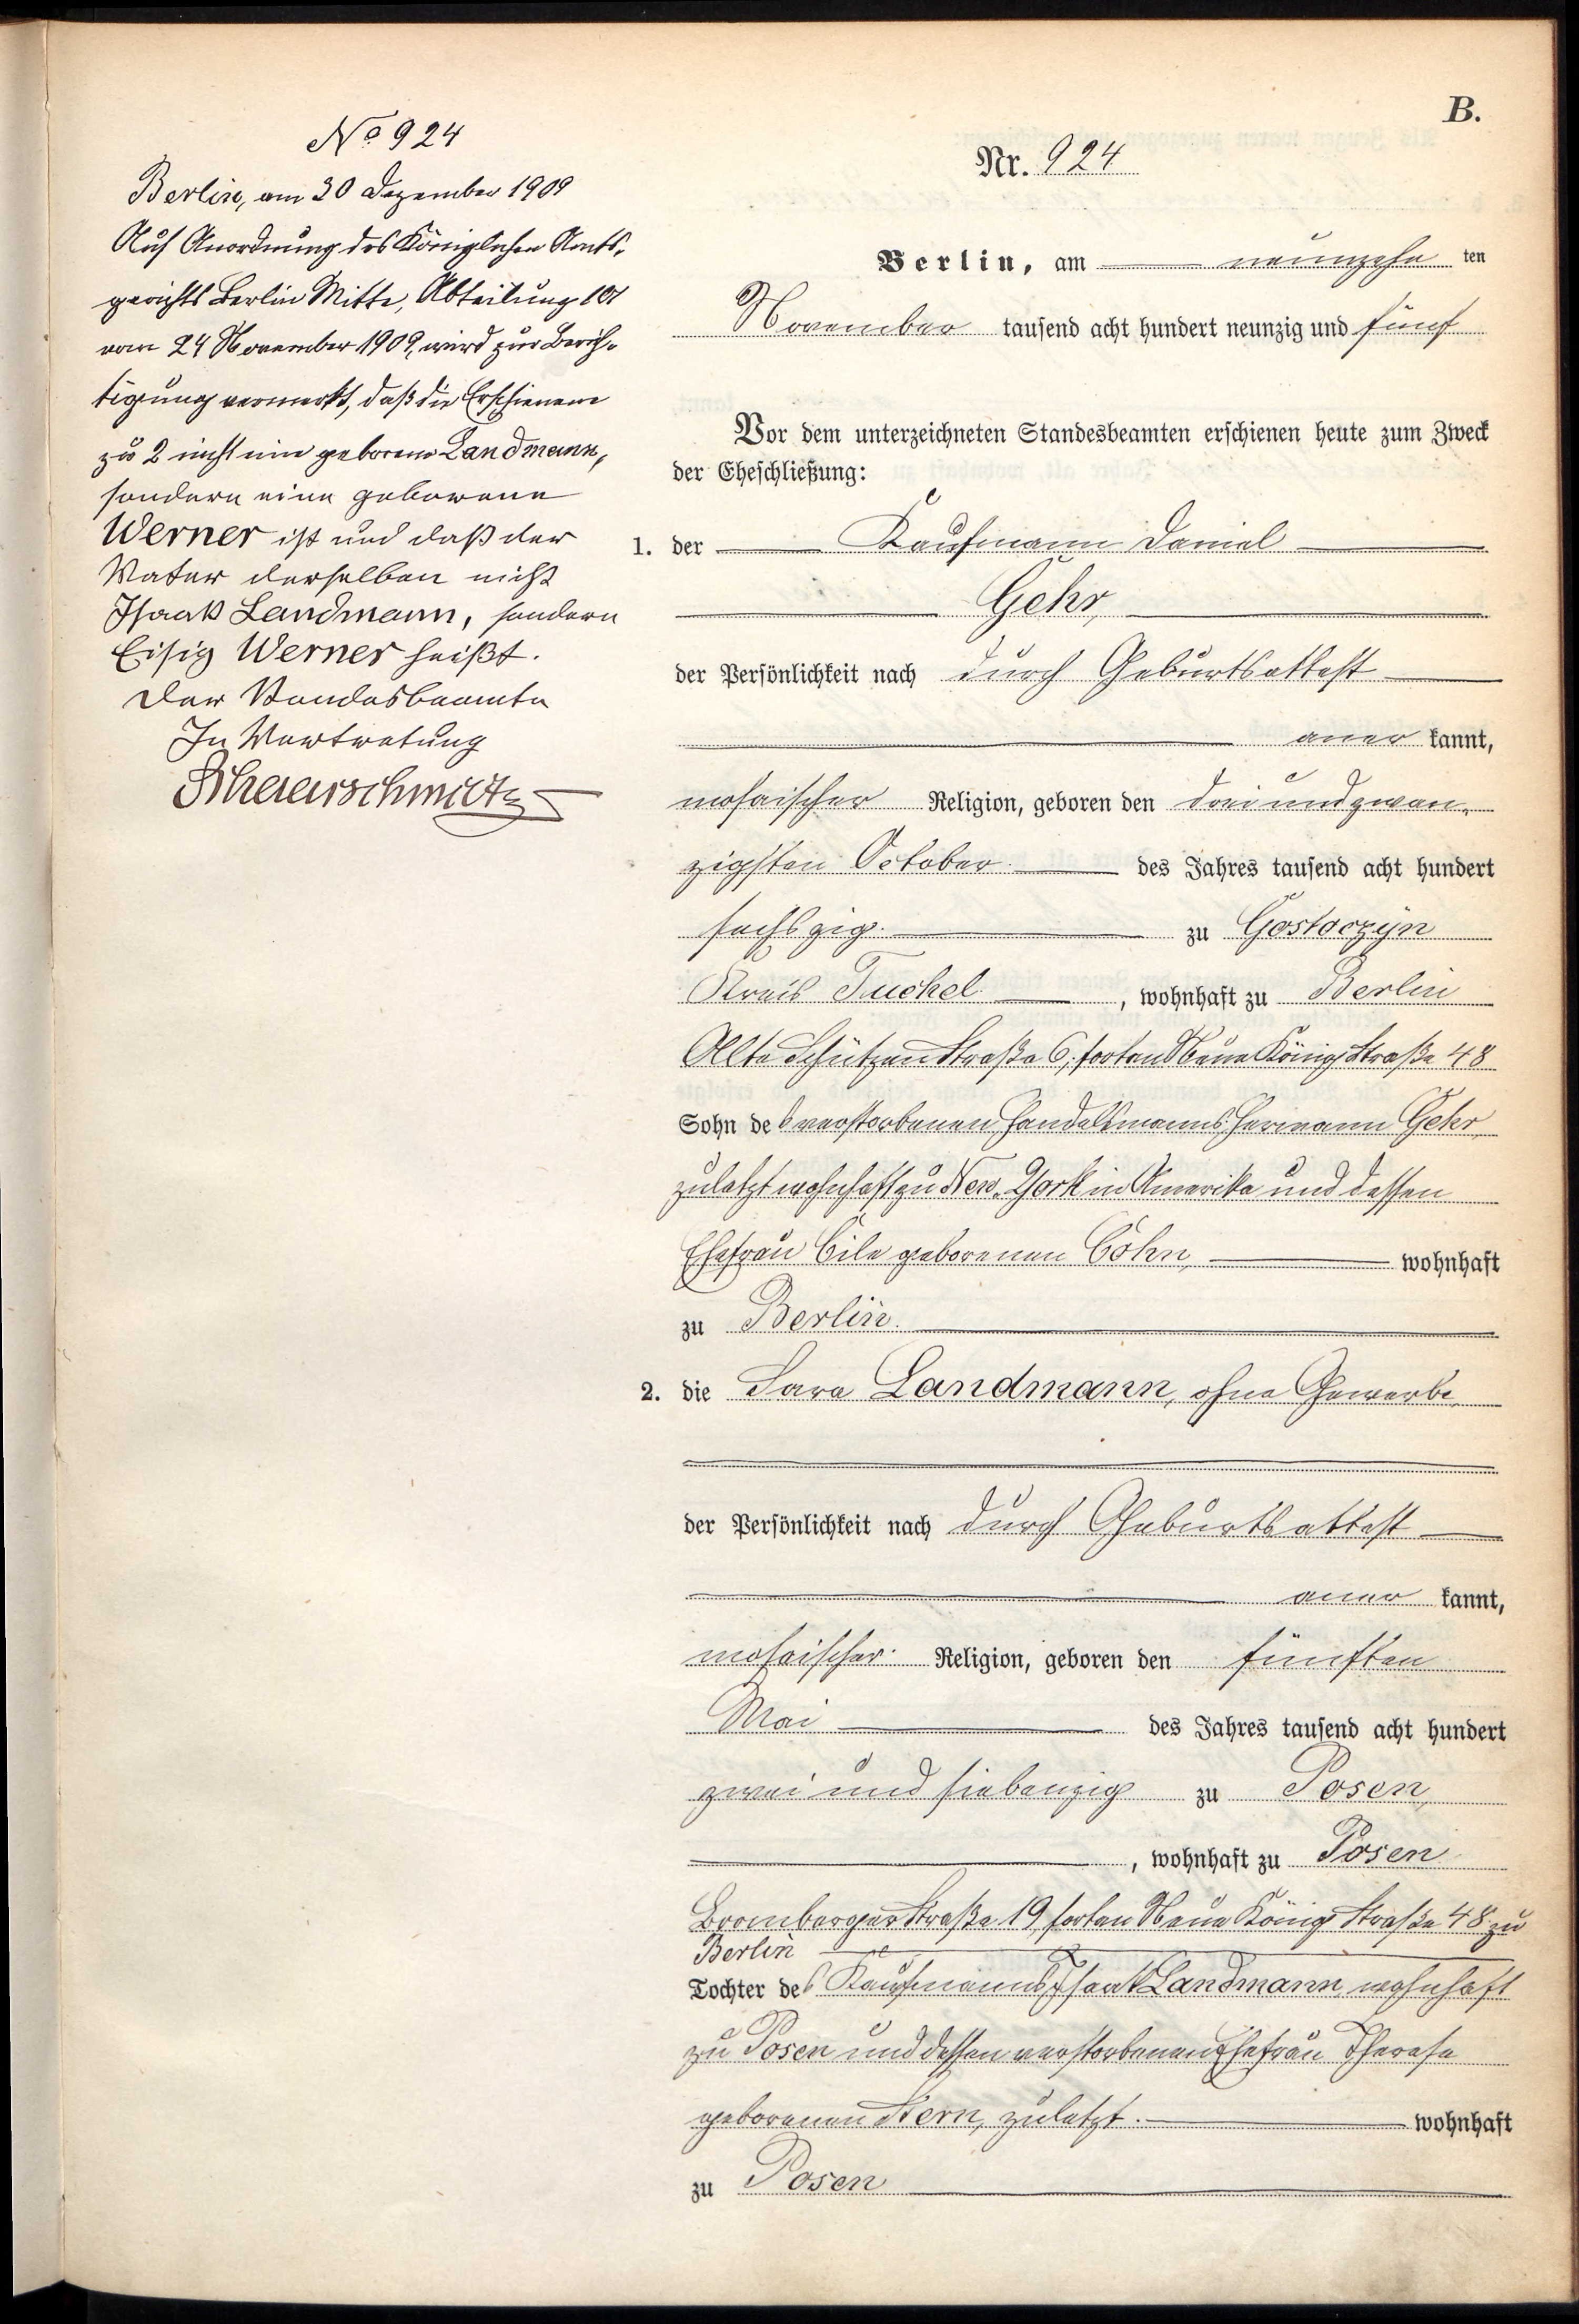 B.
No 924
Berlin, am 30 Dezember 1909
Auf Anordnung des Königlichen Amts-
gerichts Berlin Mitte, Abteilung
vom 24 November 1909, wird zur Berich-
tigung vermerkt, daß die Erschienene
zu 2 nicht eine geborene Landmann,
sondern eine geborene
Werner ist und daß der
Vater derselben nicht
Isaak Landmann, sondern
Eisig Werner heißt.
Der Standesbeamte
In Vertretung
Schaarschmidt
Nr. 924
Berlin, am neunzehn ten
November tausend acht hundert neunzig und fünf
Vor dem unterzeichneten Standesbeamten erschienen heute zum Zweck
der Eheschließung:
1. der Kaufmann Daniel
Gehr,
der Persönlichkeit nach durch Geburtsattest
aner kannt,
mosaischer Religion, geboren den drei und zwan-
zigsten October des Jahres tausend acht hundert
sechszig zu Gostoczyn
Kreis Tuchel, wohnhaft zu Berlin
Alte Schützen Straße 6, fortan Neue König Straße 48
Sohn des verstorbenen Handelsmanns Hermann Gehr,
zuletzt wohnhaft zu New-York in Amerika und dessen
Ehefrau Cile geborenen Cohn, wohnhaft
zu Berlin.
2. die Sara Landmann, ohne Gewerbe,
der Persönlichkeit nach durch Geburtsattest
aner kannt,
mosaischer Religion, geboren den fünften
Mai des Jahres tausend acht hundert
zwei und siebenzig zu Posen,
, wohnhaft zu Posen
Bromberger Straße 19, fortan Neue König Straße 48 zu
Berlin
Tochter des Kaufmanns Isaak Landmann, wohnhaft
zu Posen und dessen verstorbenen Ehefrau Therese
geborenen Stern, zuletzt wohnhaft
zu Posen